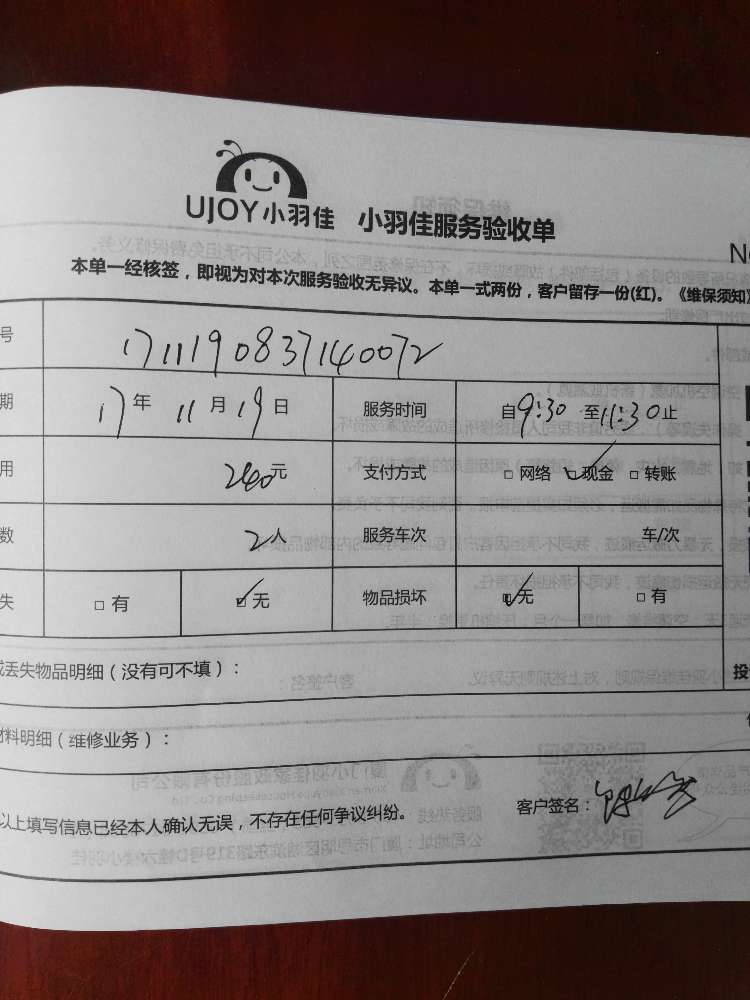 UJOY小羽佳 小羽佳服务验收单
本单一经核签，即视为对本次服务验收无异议。本单一式两份，客户留存一份(红)。《维保须知》
号 1711190837140072
期 17年 11月 19日 服务时间 自9:30 至11:30止
用 240元 支付方式 □ 网络 ☑ 现金 □ 转账
数 2人 服务车次 车/次
失 □ 有 ☑ 无 物品损坏 ☑ 无 □ 有
或丢失物品明细（没有可不填）：
投
材料明细（维修业务）：
以上填写信息已经本人确认无误，不存在任何争议纠纷。 客户签名：